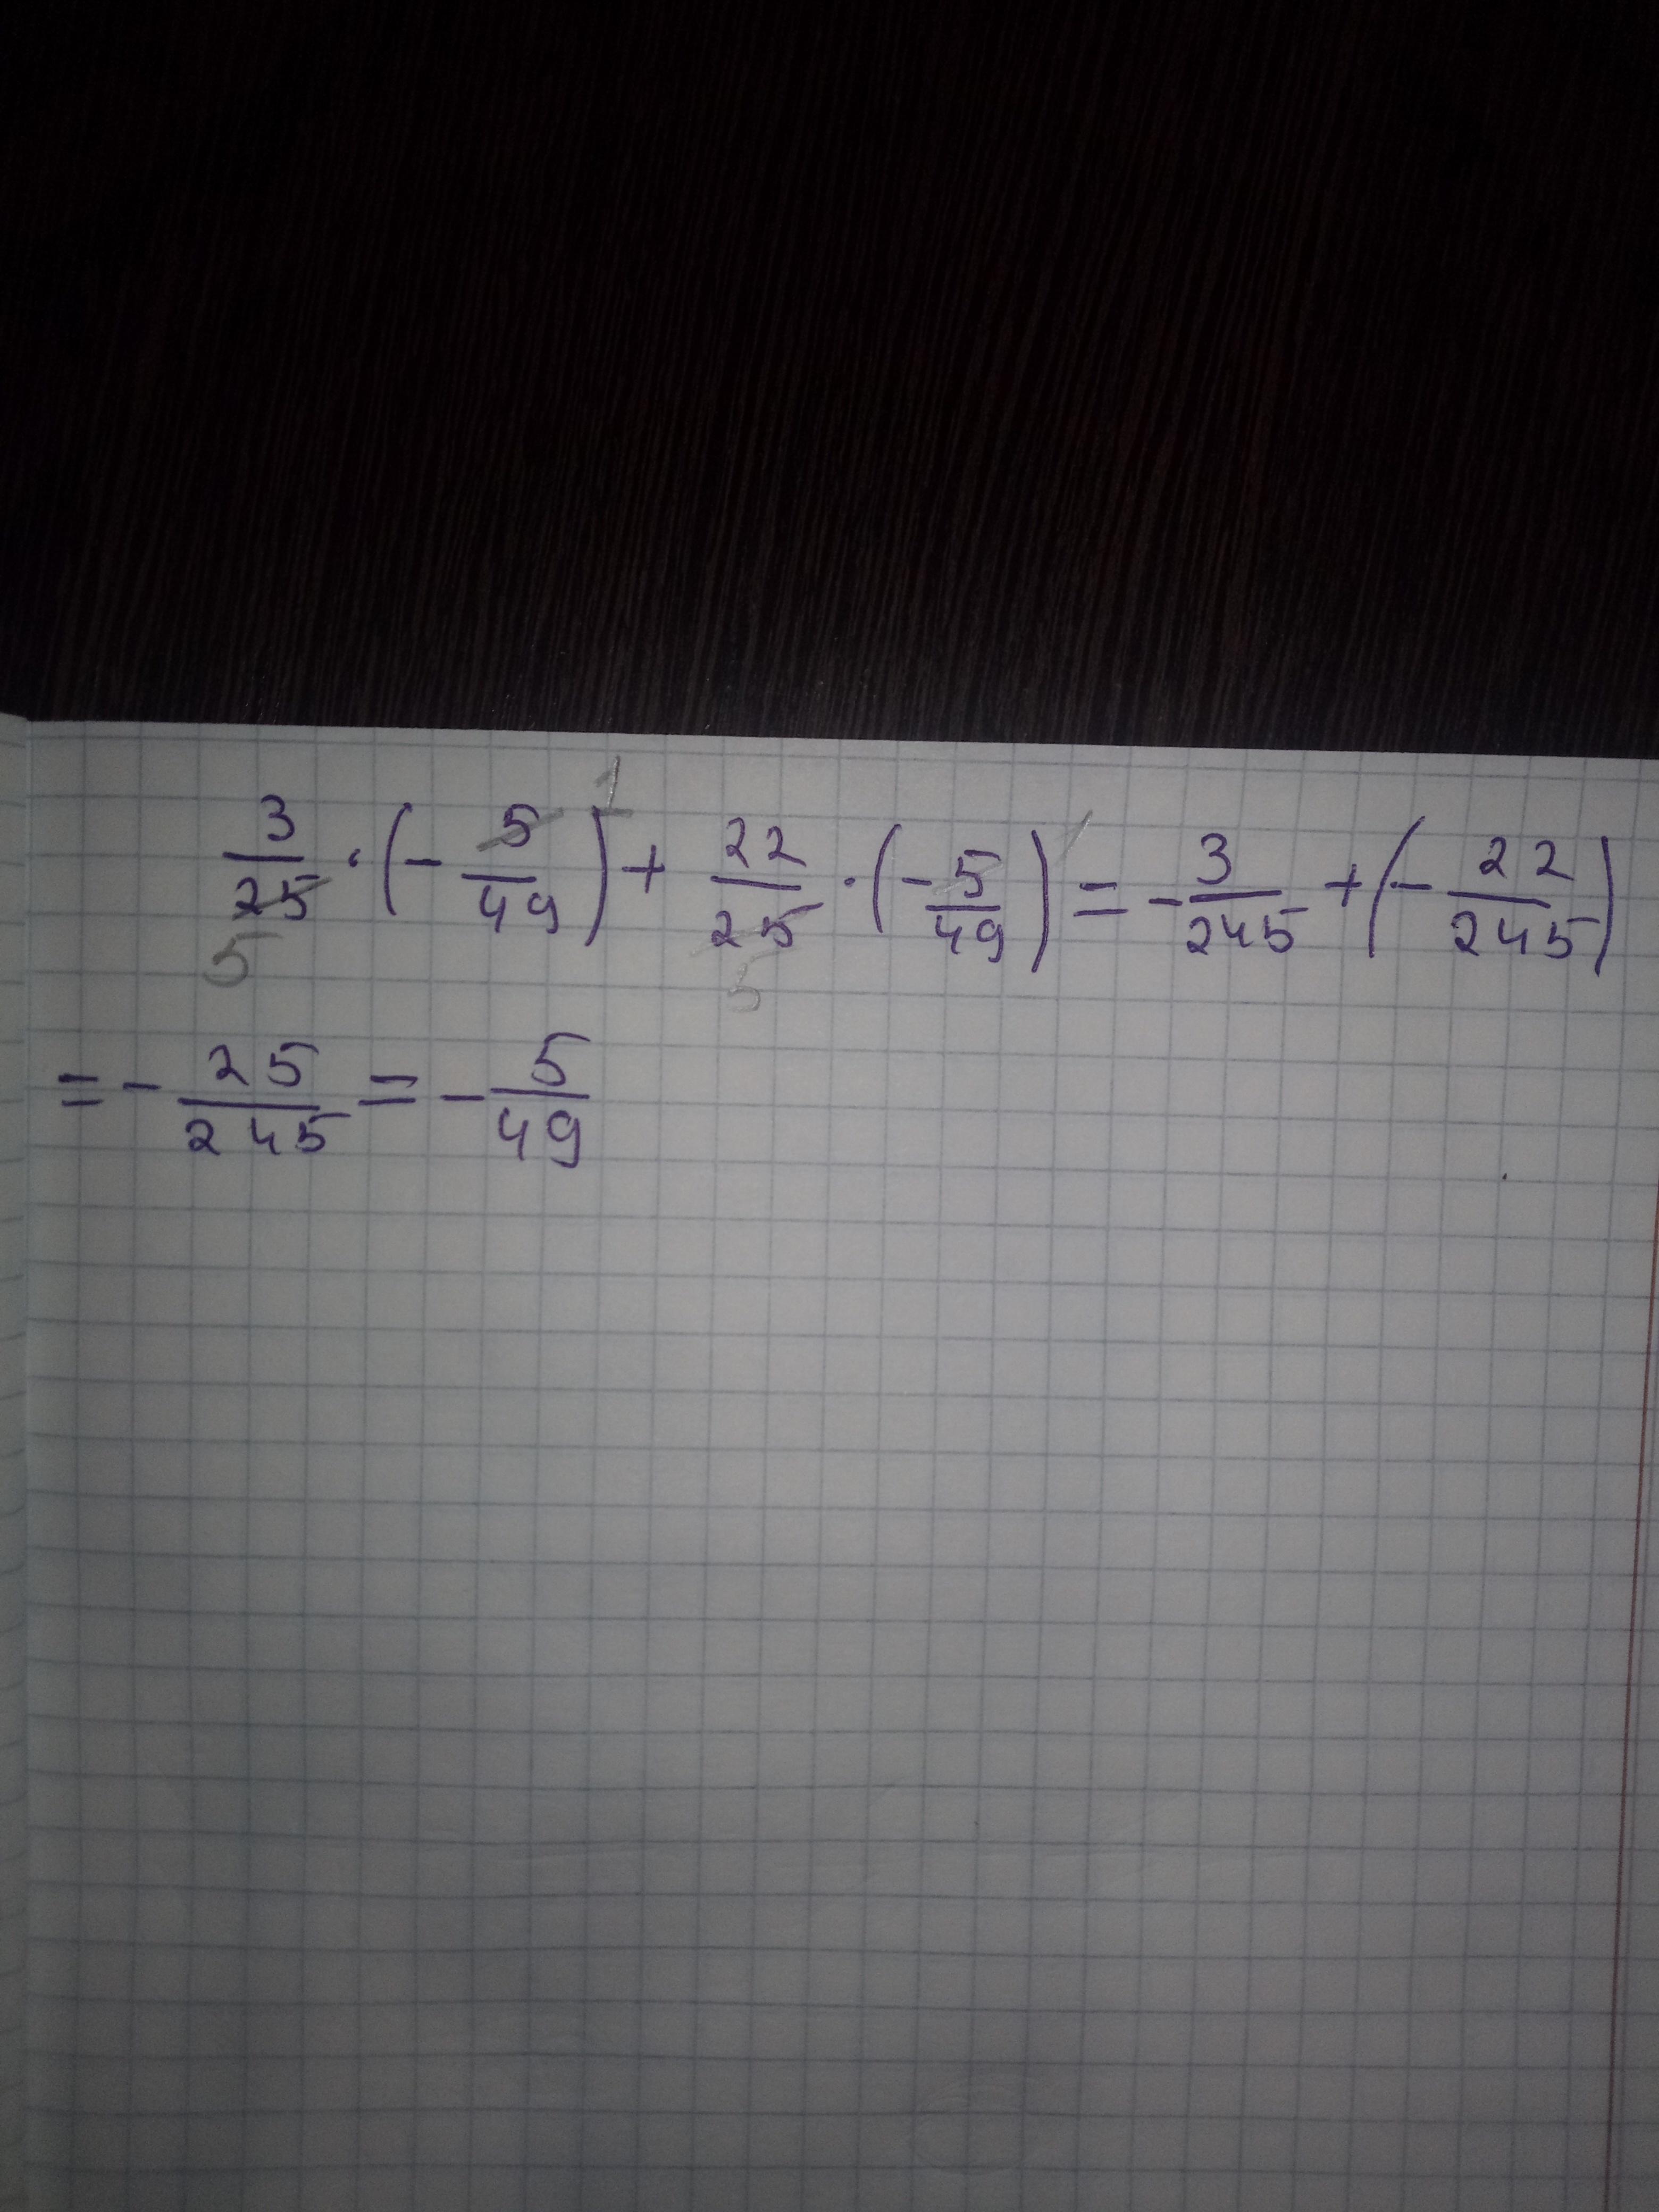 3/25 · (- 5/49) 1 + 22/25 · (- 5/49) 1 = - 3/245 + (- 22/245)
5 5
= - 25/245 = - 5/49